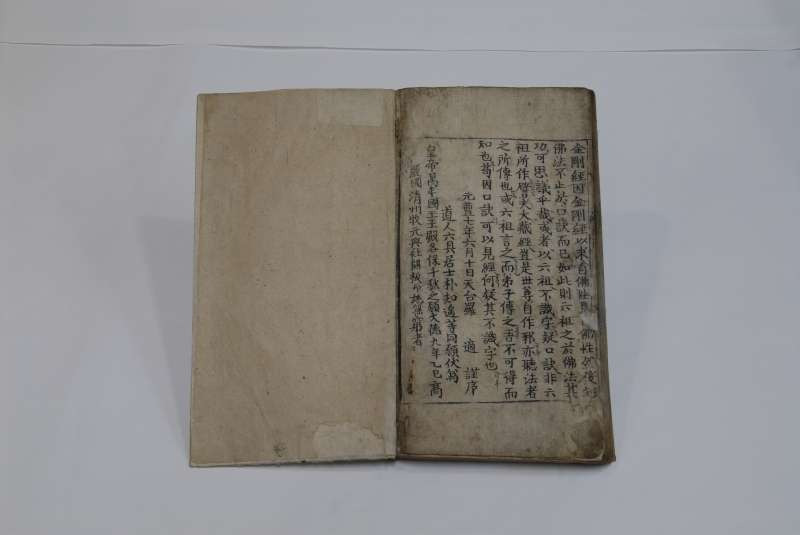 金剛經因金剛經以求自佛性 佛性然後
佛法不止於口訣而已如此則六祖之於佛法其
功可思議乎哉或者以六祖不識字疑口訣非六
祖所作譬夫大藏經豈是世尊自作邪亦聽法者
之所傳也或六祖言之而弟子傳之吾不可得而
知也苟因口訣可以見經何疑其不識字也
元豐七年六月十日天台羅 適 謹序
道人六具居士朴知遙等同願伏爲
皇帝萬年國王王殿各保千秋之願大德九年乙巳高
麗國淸州牧元興社開板